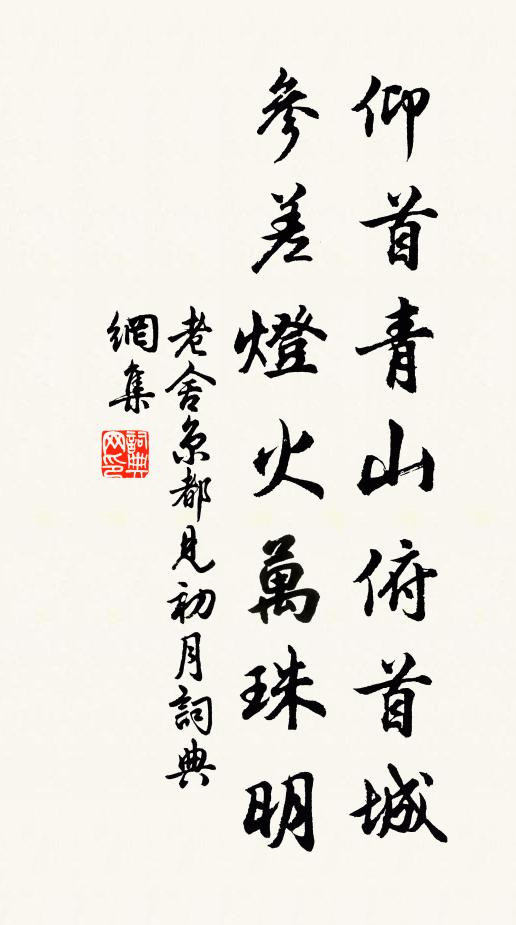 仰首青山俯首城
參差燈火萬珠明
老舍京都見初月詞典
網集
詞典
网印